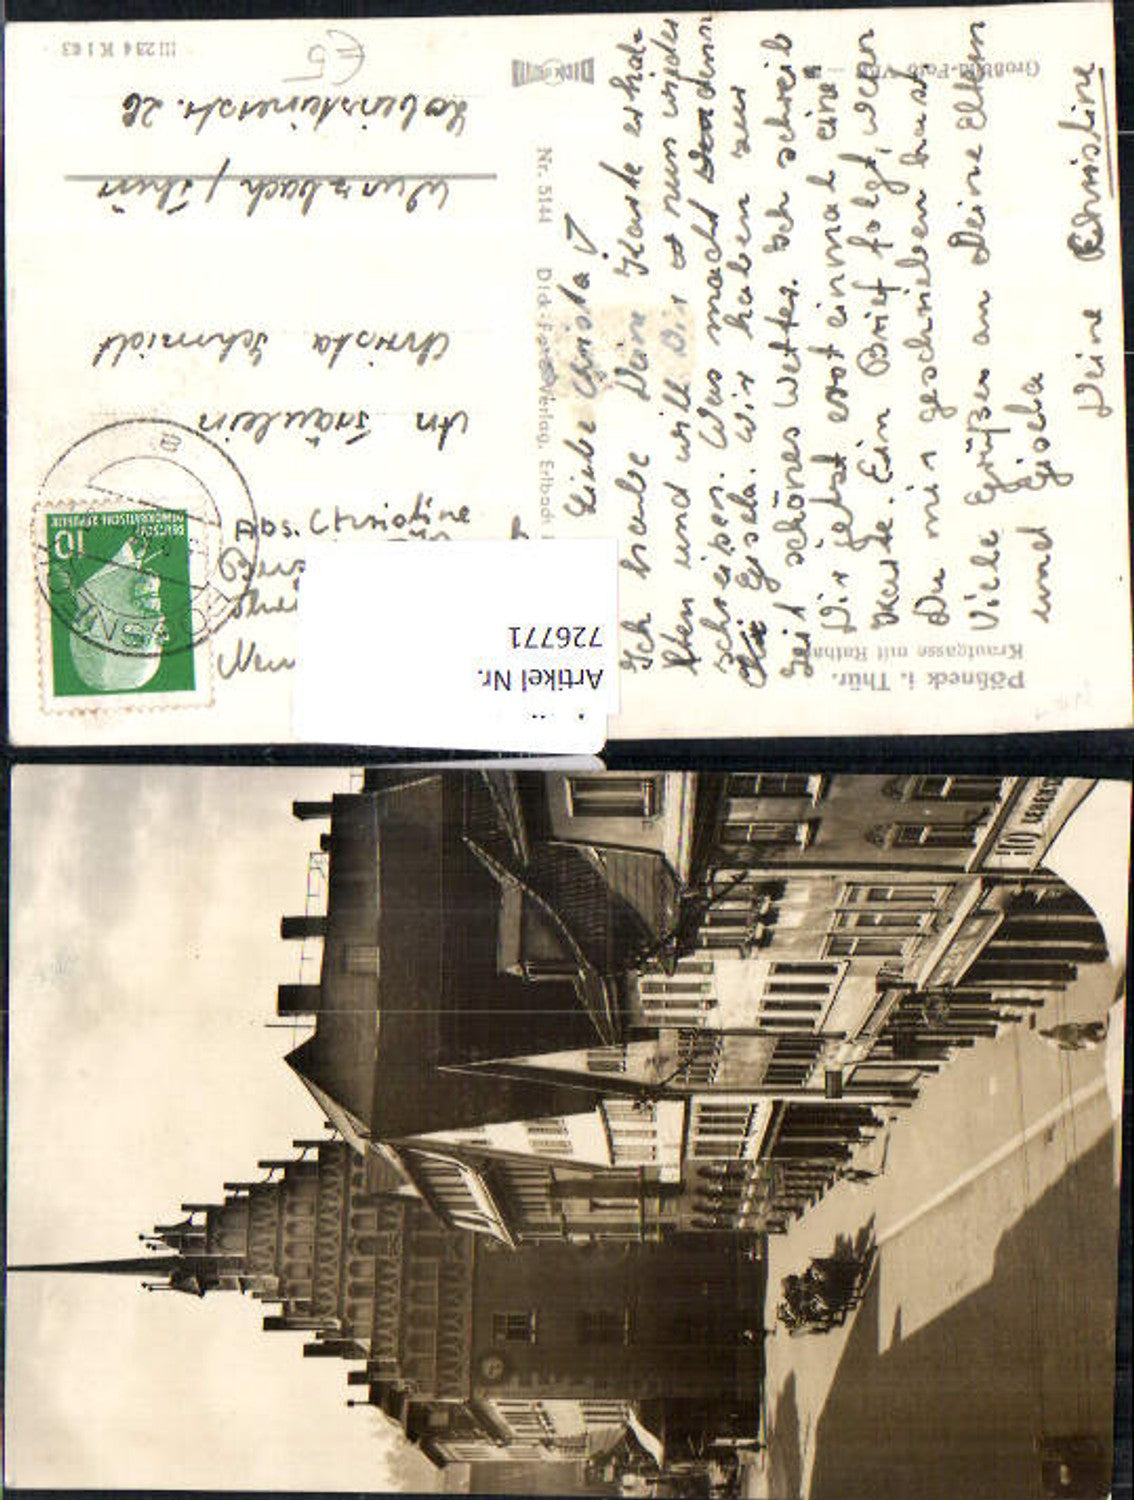 Liebe Christa!
Ich habe Deine Karte erhal-
ten und will Dir nun wieder
schreiben. Was macht denn
Gisela. Wir haben zur
Zeit schönes Wetter. Ich schreib
Dir jetzt erst einmal eine
Karte. Ein Brief folgt, wenn
Du mir geschrieben hast.
Viele Grüße an Deine Eltern
und Gisela
Deine Christine
Pößneck i. Thür.
Krautgasse mit Rathaus
Großbild-Foto
Nr. 5144 Dick-Foto-Verlag, Erlbach
DICK FOTO
III 23 4 K 1 63
DEUTSCHE
DEMOKRATISCHE REPUBLIK
10
Abs. Christine
An Fräulein
Christa Schmidt
Wurzbach / Thür
Lobensteinerstr. 26
Artikel Nr.
726771
HO LEBENS